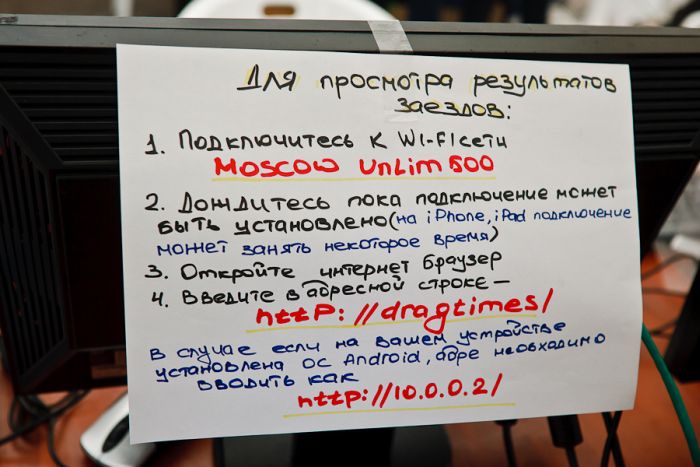 Для просмотра результатов
заездов:
1. Подключитесь к Wi-Fi сети
Moscow Unlim 500
2. Дождитесь пока подключение может
быть установлено (на iPhone, iPad подключение
может занять некоторое время)
3. Откройте интернет браузер
4. Введите в адресной строке —
http://dragtimes/
В случае если на вашем устройстве
установлена ОС Android, адре необходимо
вводить как
http://10.0.0.2/